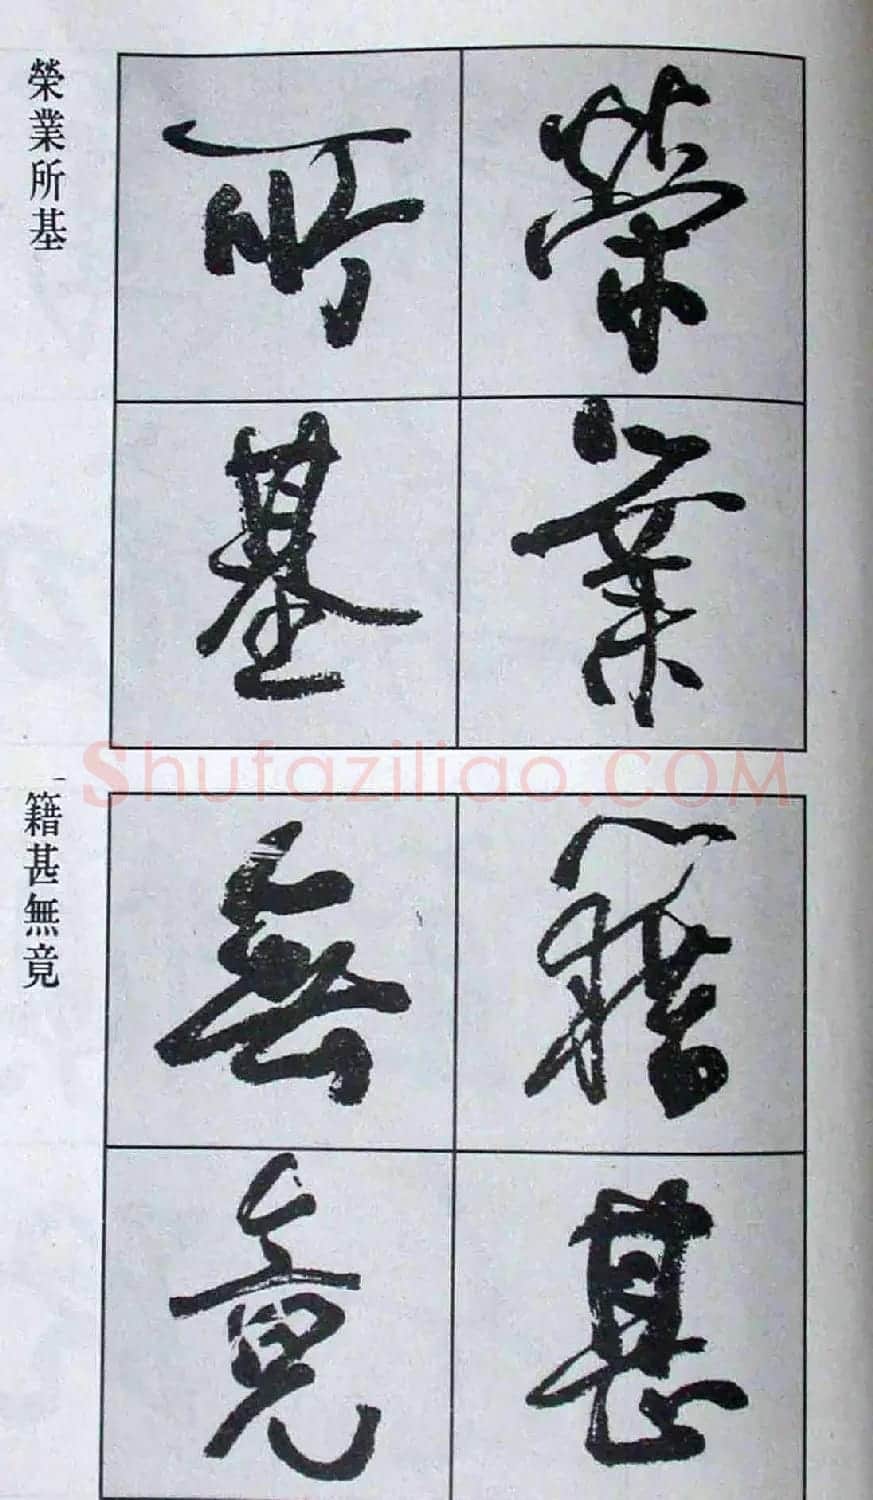 榮業所基
榮業
所基
籍甚無竟
籍甚
無竟
Shufaziliao.COM